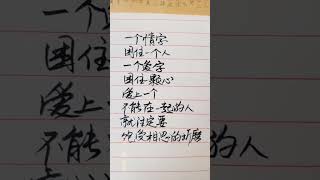 一个情字
困住一个人
一个爱字
困住一颗心
爱上一个
不能在一起的人
就注定要
饱受相思的折磨